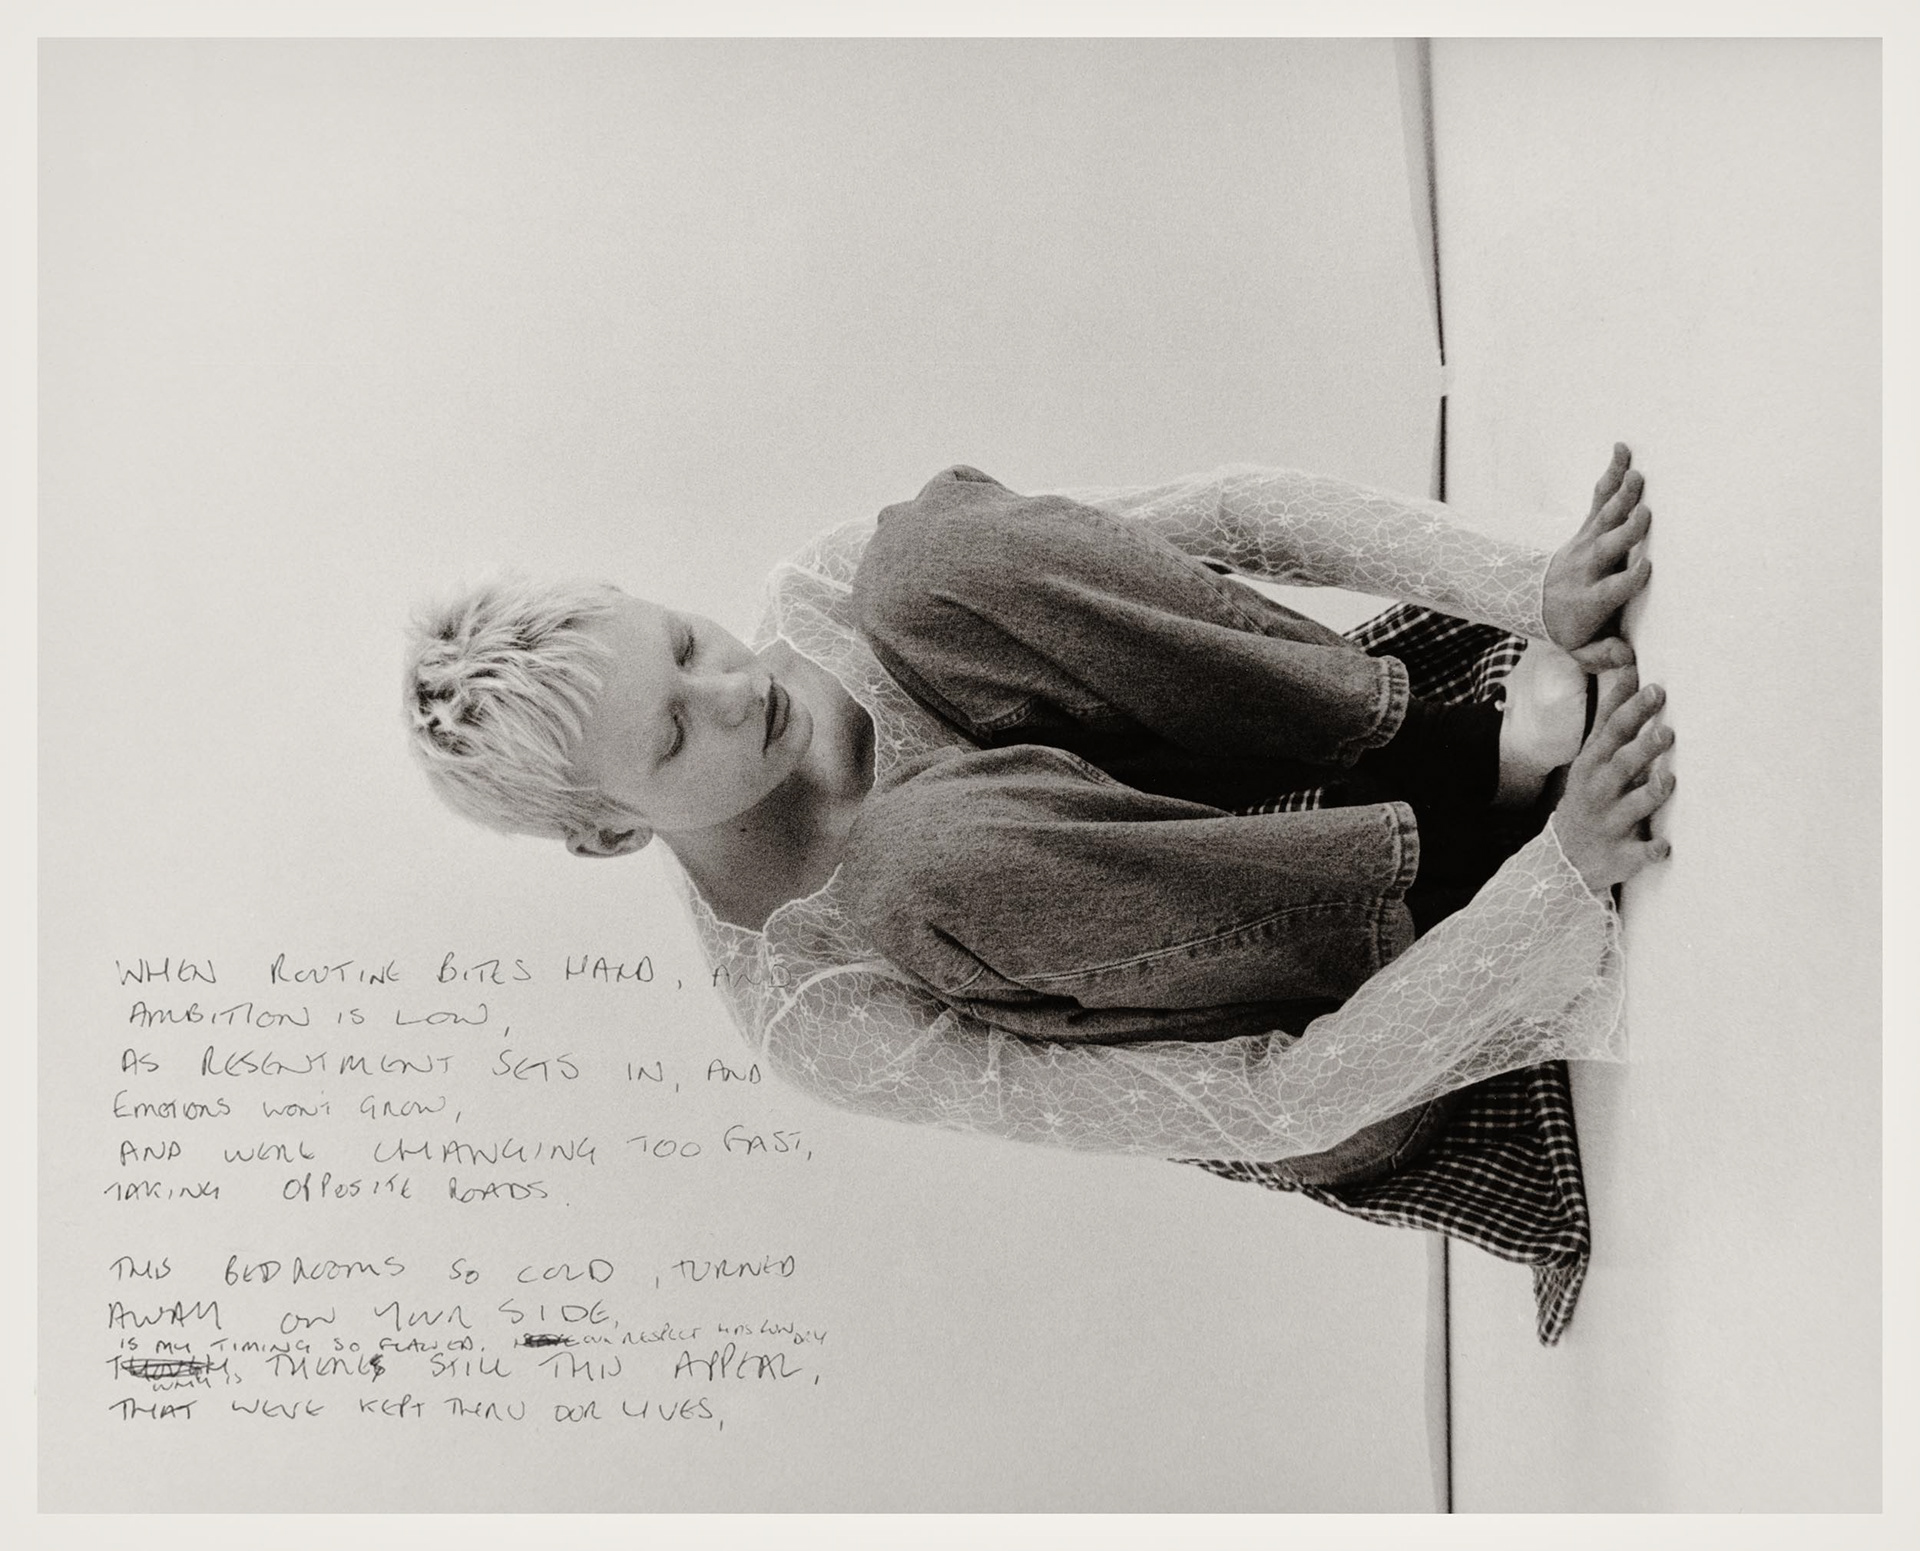 WHEN ROUTINE BITES HARD, AND
AMBITION IS LOW,
AS RESENTMENT SETS IN, AND
EMOTIONS WONT GROW,
AND WERE CHANGING TOO FAST,
TAKING OPPOSITE ROADS.
THIS BEDROOMS SO COLD, TURNED
AWAY ON YOUR SIDE,
IS MY TIMING SO FLAWED. OUR RESPECT HAS RUN DRY
THERES STILL THIS APPEAL,
WHY IS
THAT WEVE KEPT THRU OUR LIVES,